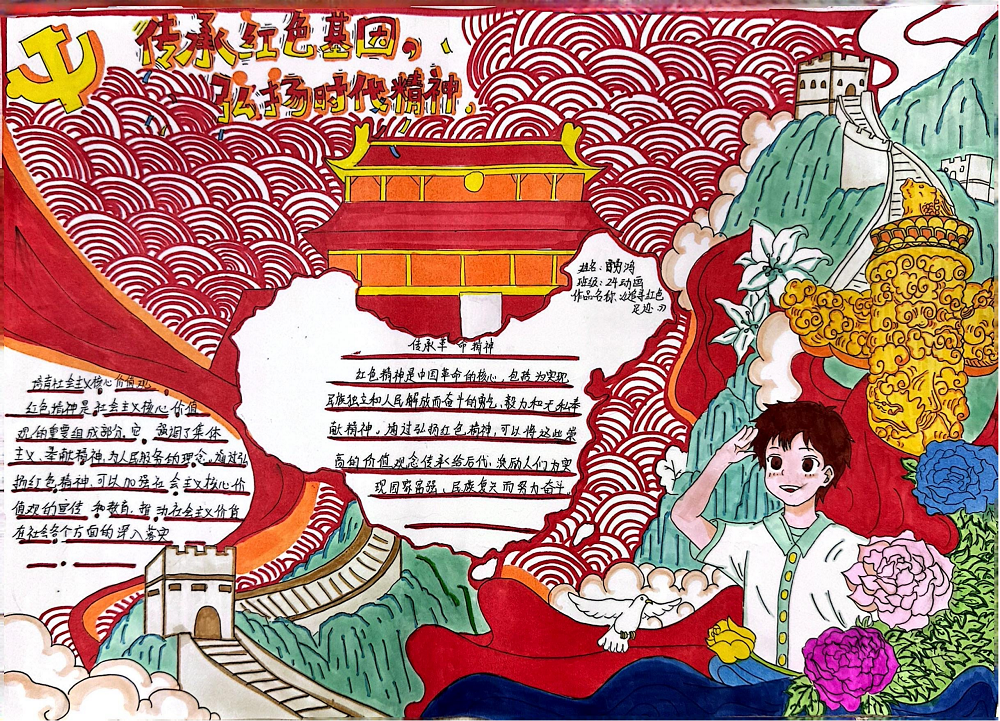 传承红色基因,
弘扬时代精神。
姓名:鸿
班级:24动画
作品名称:《追寻红色
足迹》
传承革命精神
红色精神是中国革命的核心,包括为实现
民族独立和人民解放而奋斗的勇气、毅力和无私奉
献精神。通过弘扬红色精神,可以将这些崇
高的价值观念传承给后代,激励人们为实
现国家富强、民族复兴而努力奋斗。
培育社会主义核心价值观
红色精神是社会主义核心价值
观的重要组成部分,它强调了集体
主义、奉献精神、为人民服务的理念。通过弘
扬红色精神,可以加强社会主义核心价
值观的宣传和教育,推动社会主义价值
在社会各个方面的深入落实